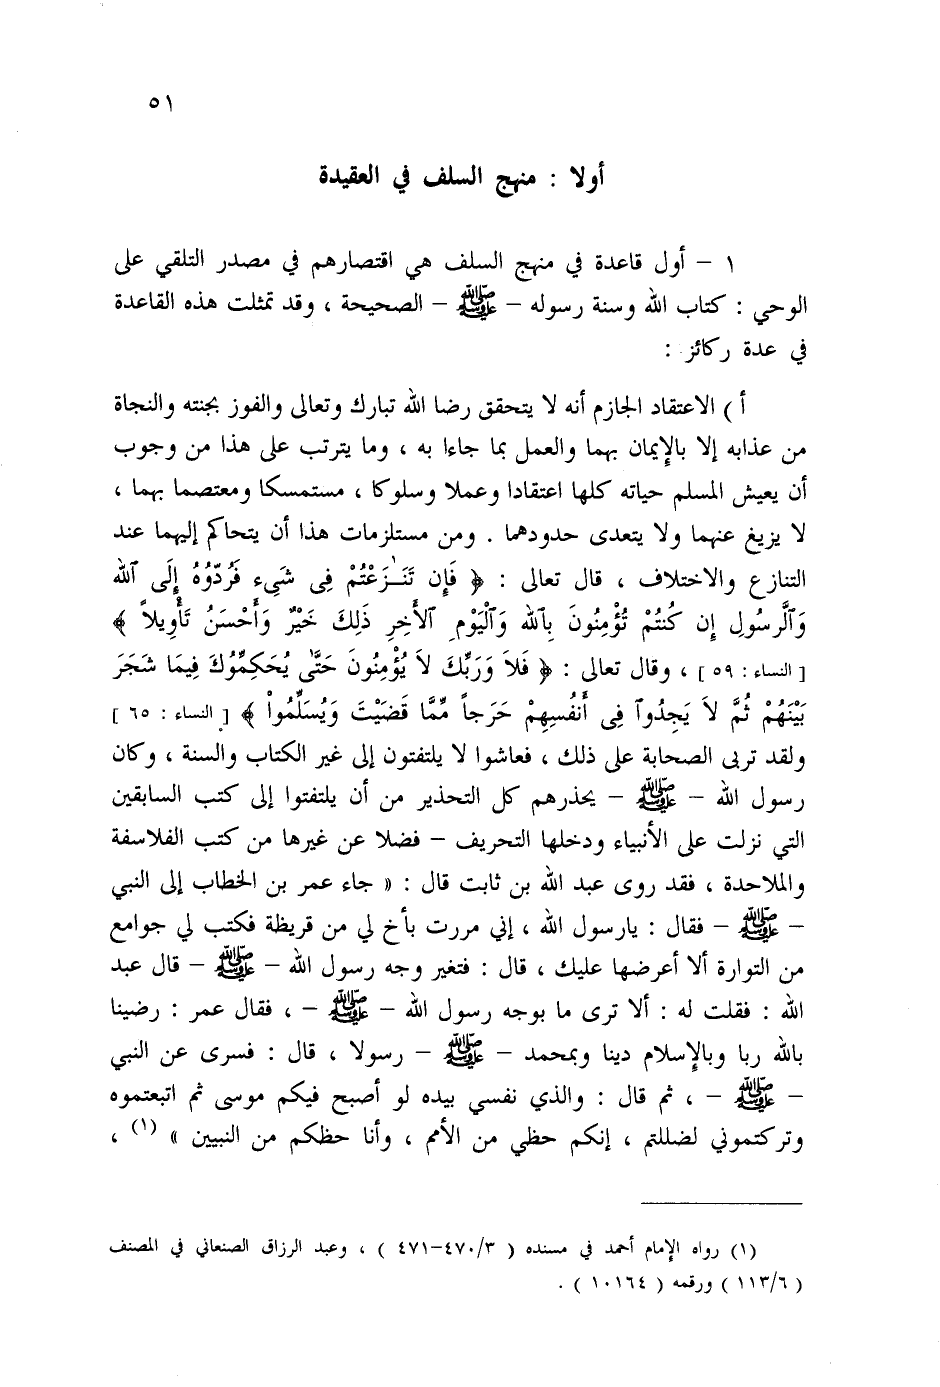 ٥١
أولا : منهج السلف في العقيدة
١ – أول قاعدة في منهج السلف هي اقتصارهم في مصدر التلقي على
الوحي : كتاب الله وسنة رسوله – ﷺ – الصحيحة ، وقد تمثلت هذه القاعدة
في عدة ركائز :
أ ) الاعتقاد الجازم أنه لا يتحقق رضا الله تبارك وتعالى والفوز بجنته والنجاة
من عذابه إلا بالإيمان بهما والعمل بما جاءا به ، وما يترتب على هذا من وجوب
أن يعيش المسلم حياته كلها اعتقادا وعملا وسلوكا ، مستمسكا ومعتصما بهما ،
لا يزيغ عنهما ولا يتعدى حدودهما . ومن مستلزمات هذا أن يتحاكم إليهما عند
التنازع والاختلاف ، قال تعالى : ﴿ فَإِن تَنَـٰزَعْتُمْ فِى شَىْءٍ فَرُدُّوهُ إِلَى ٱللَّهِ
وَٱلرَّسُولِ إِن كُنتُمْ تُؤْمِنُونَ بِٱللَّهِ وَٱلْيَوْمِ ٱلْأَخِرِ ذَلِكَ خَيْرٌ وَأَحْسَنُ تَأْوِيلاً ﴾
[ النساء : ٥٩ ] ، وقال تعالى : ﴿ فَلاَ وَرَبِّكَ لاَ يُؤْمِنُونَ حَتَّىٰ يُحَكِّمُوكَ فِيمَا شَجَرَ
بَيْنَهُمْ ثُمَّ لاَ يَجِدُواْ فِى أَنفُسِهِمْ حَرَجاً مِّمَّا قَضَيْتَ وَيُسَلِّمُواْ ﴾ [ النساء : ٦٥ ]
ولقد تربى الصحابة على ذلك ، فعاشوا لا يلتفتون إلى غير الكتاب والسنة ، وكان
رسول الله – ﷺ – يحذرهم كل التحذير من أن يلتفتوا إلى كتب السابقين
التي نزلت على الأنبياء ودخلها التحريف – فضلا عن غيرها من كتب الفلاسفة
والملاحدة ، فقد روى عبد الله بن ثابت قال : « جاء عمر بن الخطاب إلى النبي
– ﷺ – فقال : يارسول الله ، إني مررت بأخ لي من قريظة فكتب لي جوامع
من التوارة ألا أعرضها عليك ، قال : فتغير وجه رسول الله – ﷺ – قال عبد
الله : فقلت له : ألا ترى ما بوجه رسول الله – ﷺ – ، فقال عمر : رضينا
بالله ربا وبالإسلام دينا وبمحمد – ﷺ – رسولا ، قال : فسرى عن النبي
– ﷺ – ، ثم قال : والذي نفسي بيده لو أصبح فيكم موسى ثم اتبعتموه
وتركتموني لضللتم ، إنكم حظي من الأمم ، وأنا حظكم من النبيين » (١) ،
(١) رواه الإمام أحمد في مسنده ( ٣/٤٧٠–٤٧١ ) ، وعبد الرزاق الصنعاني في المصنف
( ٦/١١٣ ) ورقمه ( ١٠١٦٤ ) .